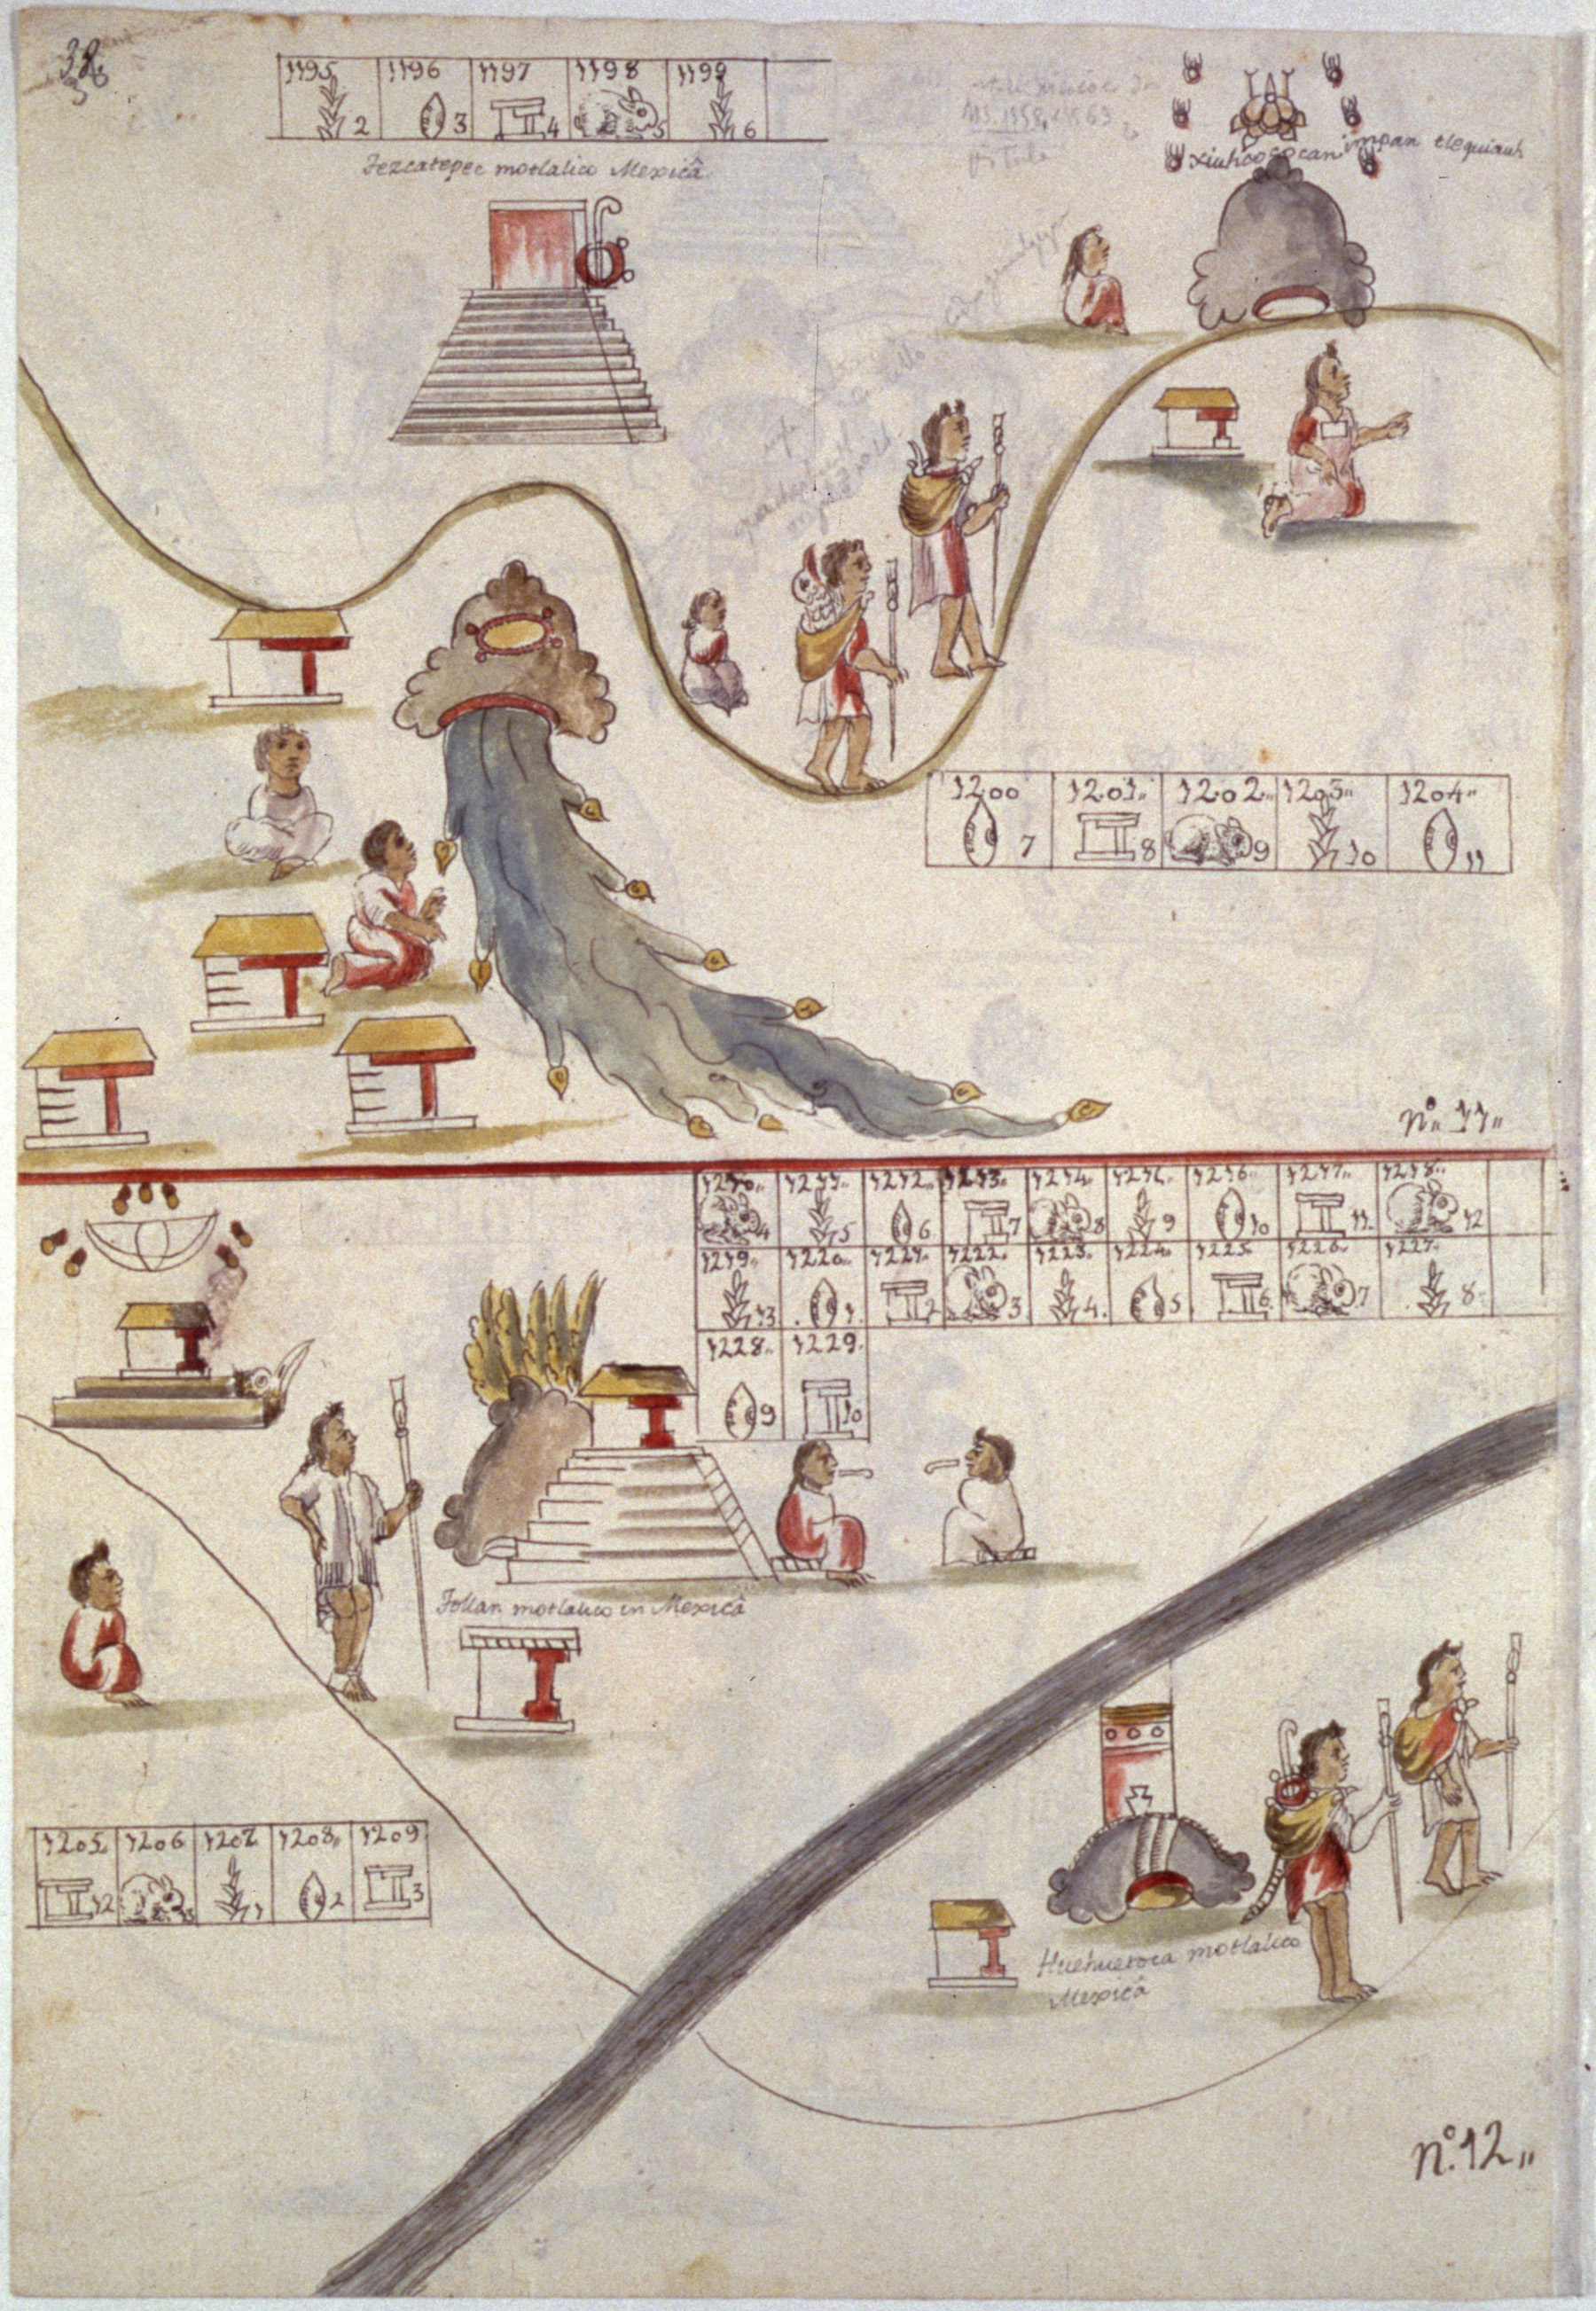 1195 1196 1197 1198 1199
2 3 4 5 6
Tezcatepec motlalico Mexicâ
xiuhcococan impan tlequiauh
1200 1201.. 1202.. 1203.. 1204..
7 8 9 10 11
nº.. 11..
1210.. 1211.. 1212.. 1213.. 1214.. 1215.. 1216.. 1217.. 1218..
4 5 6 7 8 9 10 11. 12
1219.. 1220.. 1221. 1222.. 1223.. 1224.. 1225. 1226.. 1227..
13 1. 2 3 4. 5. 6. 7 8.
1228.. 1229.
9 10
Tollan motlalico in Mexicâ
1205. 1206 1207 1208.. 1209
12 13 1 2 3
Huehuetoca motlalico
Mexicâ
nº.12..